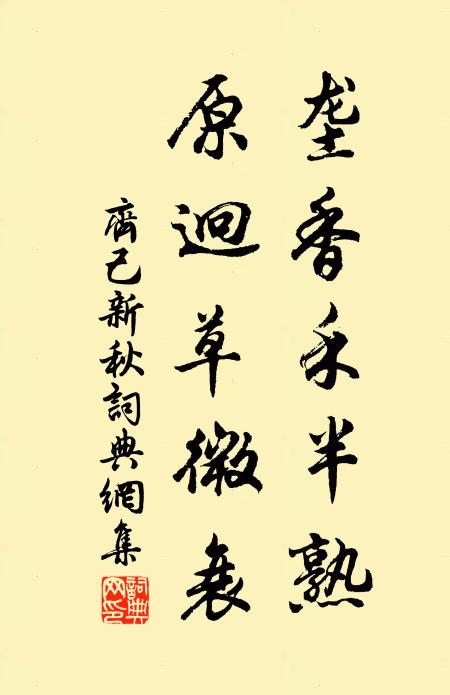 垄香禾半熟
原迥草微衰
齊己新秋詞典網集
詞典網印